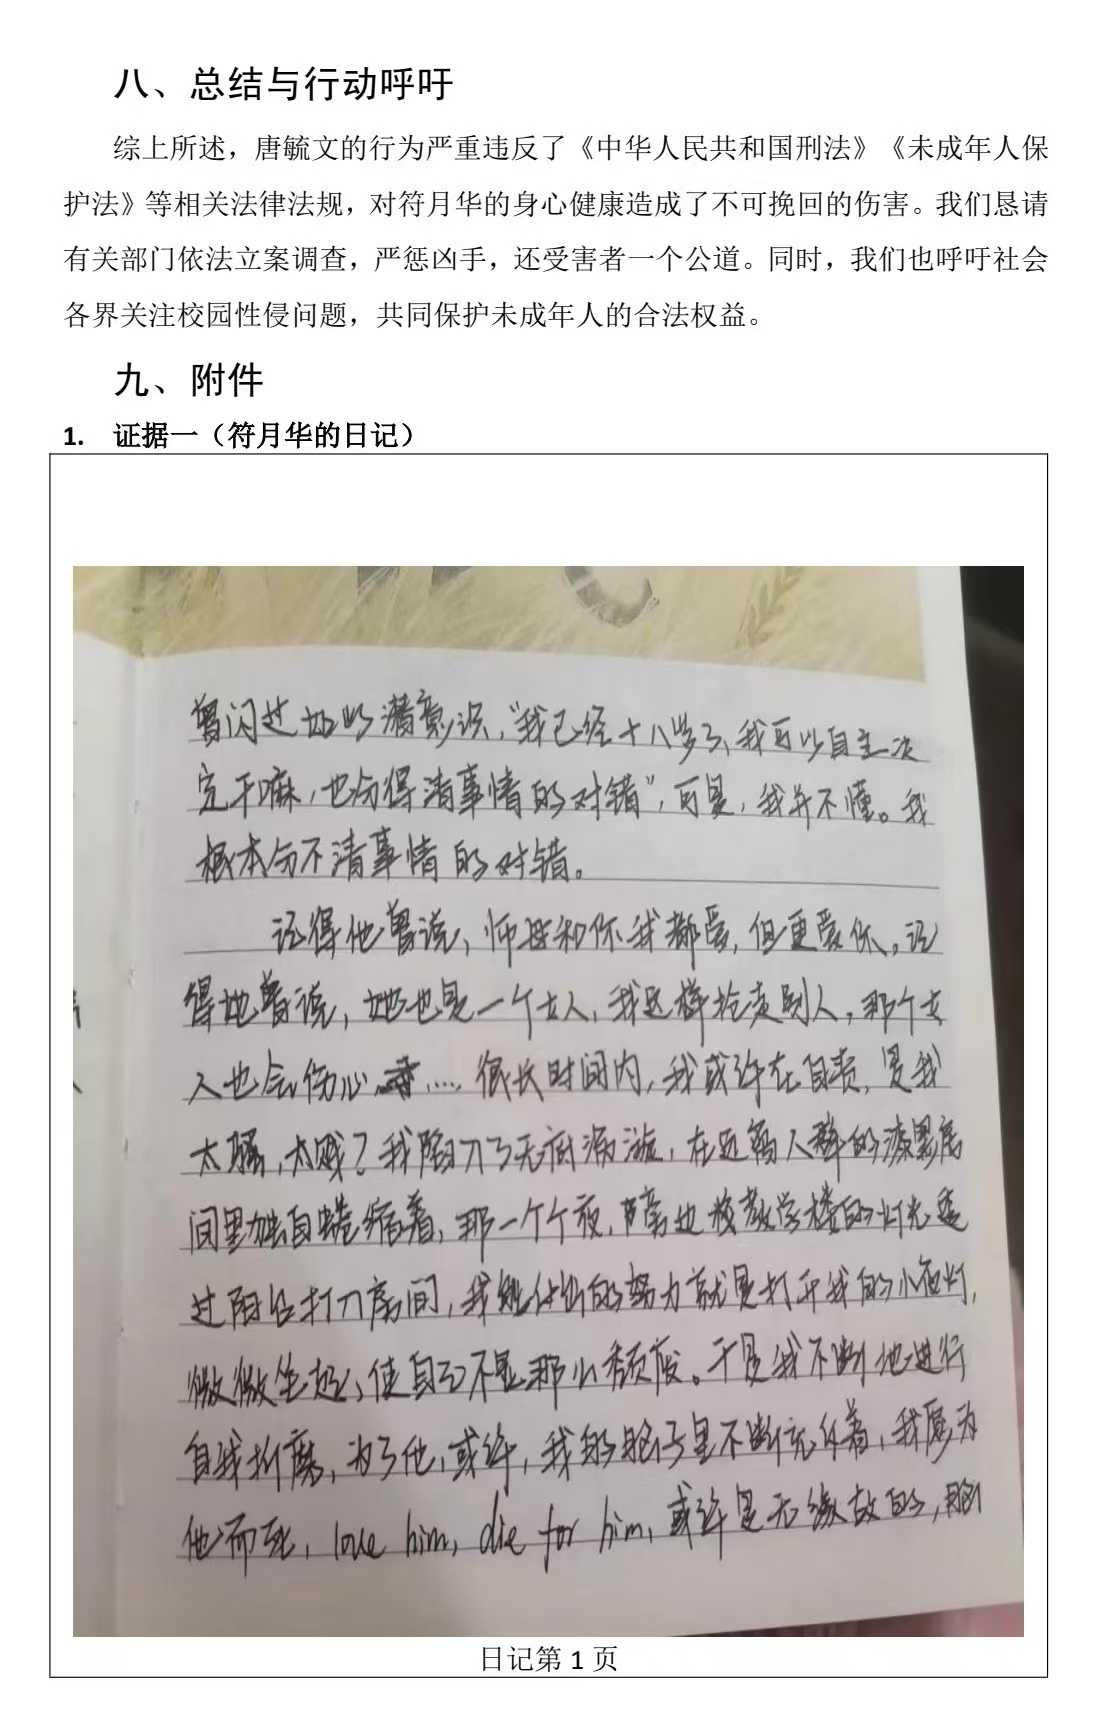 八、总结与行动呼吁
综上所述，唐毓文的行为严重违反了《中华人民共和国刑法》《未成年人保
护法》等相关法律法规，对符月华的身心健康造成了不可挽回的伤害。我们恳请
有关部门依法立案调查，严惩凶手，还受害者一个公道。同时，我们也呼吁社会
各界关注校园性侵问题，共同保护未成年人的合法权益。
九、附件
1. 证据一（符月华的日记）
曾闪过如此潜意识，“我已经十八岁了，我可以自主决
定干嘛，也分得清事情的对错”，可是，我并不懂。我
根本分不清事情的对错。
记得他曾说，师母和你我都爱，但更爱你。记
得她曾说，她也是一个女人，我这样抢走别人，那个女
人也会伤心……很长时间内，我或许在自责，是我
太骚，太贱？我陷入了无底漩涡，在远离人群的漆黑房
间里独自蜷缩着，那一个个夜，旁边校教学楼的灯光透
过阳台打入房间，我能付出的努力就是打开我的小夜灯，
微微坐起，使自己不显那么颓废。于是我不断地进行
自我折磨，为了他，或许，我的脑子里不断充斥着，我愿为
他而死，love him，die for him，或许是无缘故的，脑
日记第 1 页